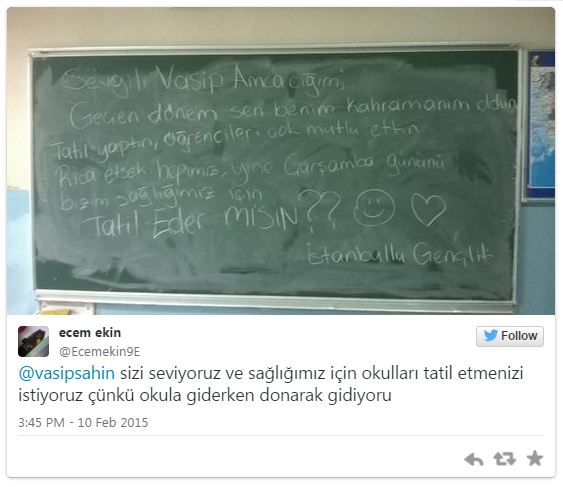 Sevgili Vasip Amcacığım;
Geçen dönem sen benim kahramanım oldun
Tatil yaptın, öğrencileri çok mutlu ettin
Rica etsek hepimiz, yine Çarşamba gününü
bizim sağlığımız için
Tatil Eder MISIN?? ☺ ♡
İstanbullu Gençlik
ecem ekin
@Ecemekin9E
Follow
@vasipsahin sizi seviyoruz ve sağlığımız için okulları tatil etmenizi
istiyoruz çünkü okula giderken donarak gidiyoru
3:45 PM - 10 Feb 2015